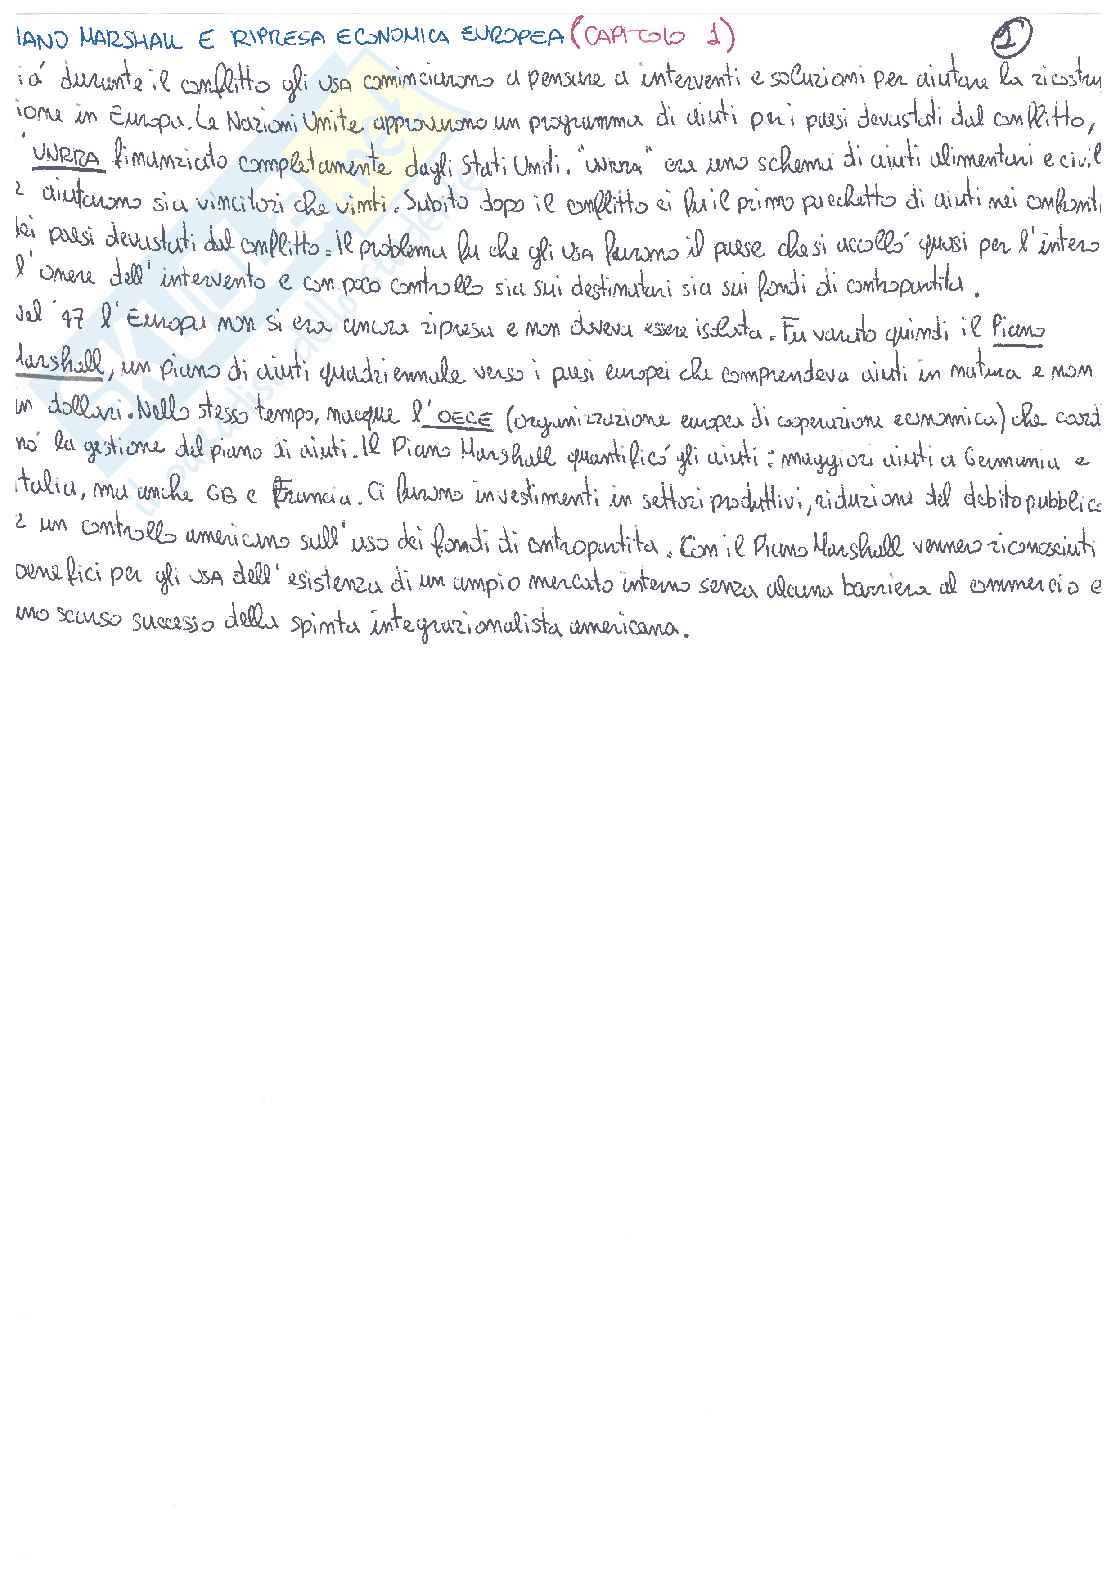 IANO MARSHALL E RIPRESA ECONOMICA EUROPEA (CAPITOLO 1) 1
ià durante il conflitto gli USA cominciarono a pensare a interventi e soluzioni per aiutare la ricostru
ione in Europa. Le Nazioni Unite approvarono un programma di aiuti per i paesi devastati dal conflitto,
'UNRRA finanziato completamente dagli Stati Uniti. "UNRRA" era uno schema di aiuti alimentari e civil
e aiutarono sia vincitori che vinti. Subito dopo il conflitto ci fu il primo pacchetto di aiuti nei confronti
dei paesi devastati dal conflitto. Il problema fu che gli USA furono il paese che si accollò quasi per l'intero
l'onere dell'intervento e con poco controllo sia sui destinatari sia sui fondi di contropartita.
Nel '47 l'Europa non si era ancora ripresa e non doveva essere isolata. Fu varato quindi il Piano
Marshall, un piano di aiuti quadriennale verso i paesi europei che comprendeva aiuti in natura e non
in dollari. Nello stesso tempo, nacque l'OECE (organizzazione europea di cooperazione economica) che coordi
nò la gestione del piano di aiuti. Il Piano Marshall quantificò gli aiuti: maggiori aiuti a Germania e
italia, ma anche GB e Francia. Ci furono investimenti in settori produttivi, riduzione del debito pubblico
e un controllo americano sull'uso dei fondi di contropartita. Con il Piano Marshall vennero riconosciuti
benefici per gli USA dell'esistenza di un ampio mercato interno senza alcuna barriera al commercio e
uno scarso successo della spinta integrazionalista americana.